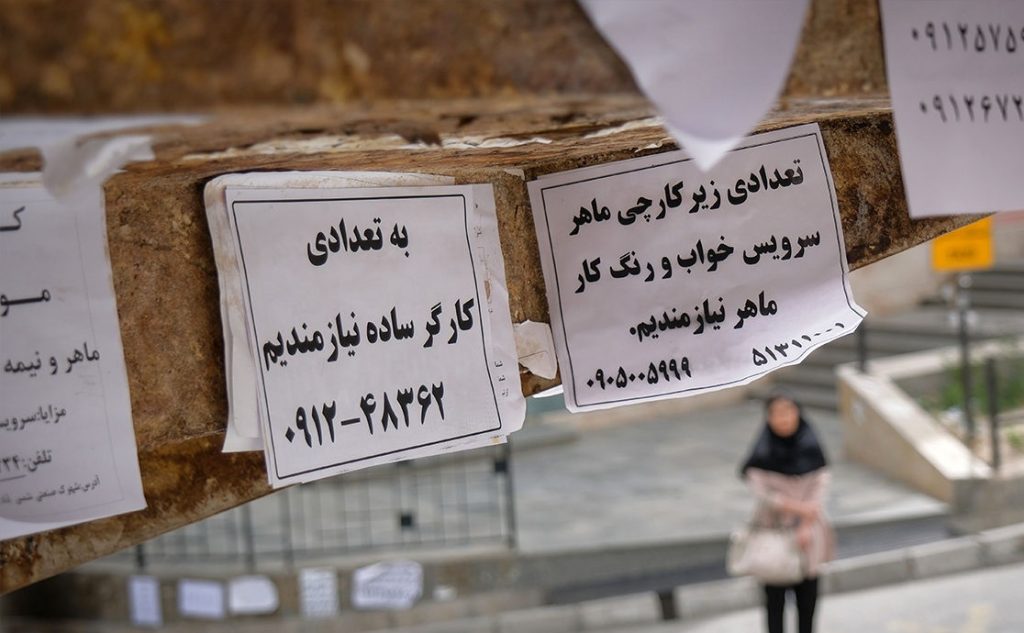 به تعدادی
کارگر ساده نیازمندیم
۰۹۱۲-۴۸۳۶۲
تعدادی زیر کارچی ماهر
سرویس خواب و رنگ کار
ماهر نیازمندیم.
۵۱۳۱۱۰۰۱
۰۹۰۵۰۰۵۹۹۹
۰۹۱۲۵۷۵۹
۰۹۱۲۶۷۲
ماهر و نیمه
مزایا:سرویس
تلفن:
آدرس:شهرک صنعتی